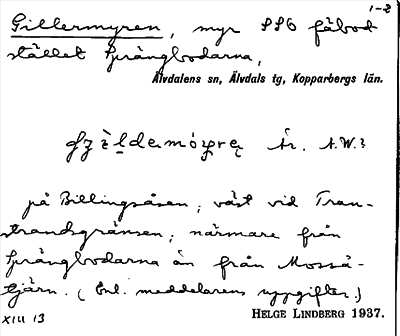 1-2
Gillermyren, myr SSO fäbod-
stället Sprängbodarna,
Älvdalens sn, Älvdals tg, Kopparbergs län.
År. A.W.?
på Billingsåsen; väst vid Tran-
strandsgränsen; närmare från
Sprängbodarna än från Mosså-
tjärn. (Enl. meddelarens uppgifter.)
XIII 13 HELGE LINDBERG 1937.